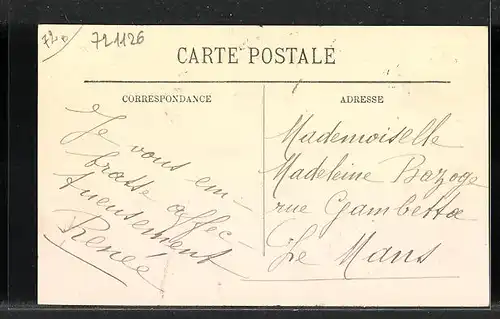 720
721126
CARTE POSTALE
CORRESPONDANCE
Je vous em-
brasse affec-
tueusement
Renée
ADRESSE
Mademoiselle
Madeleine Bazoge
rue Gambetta
Le Mans